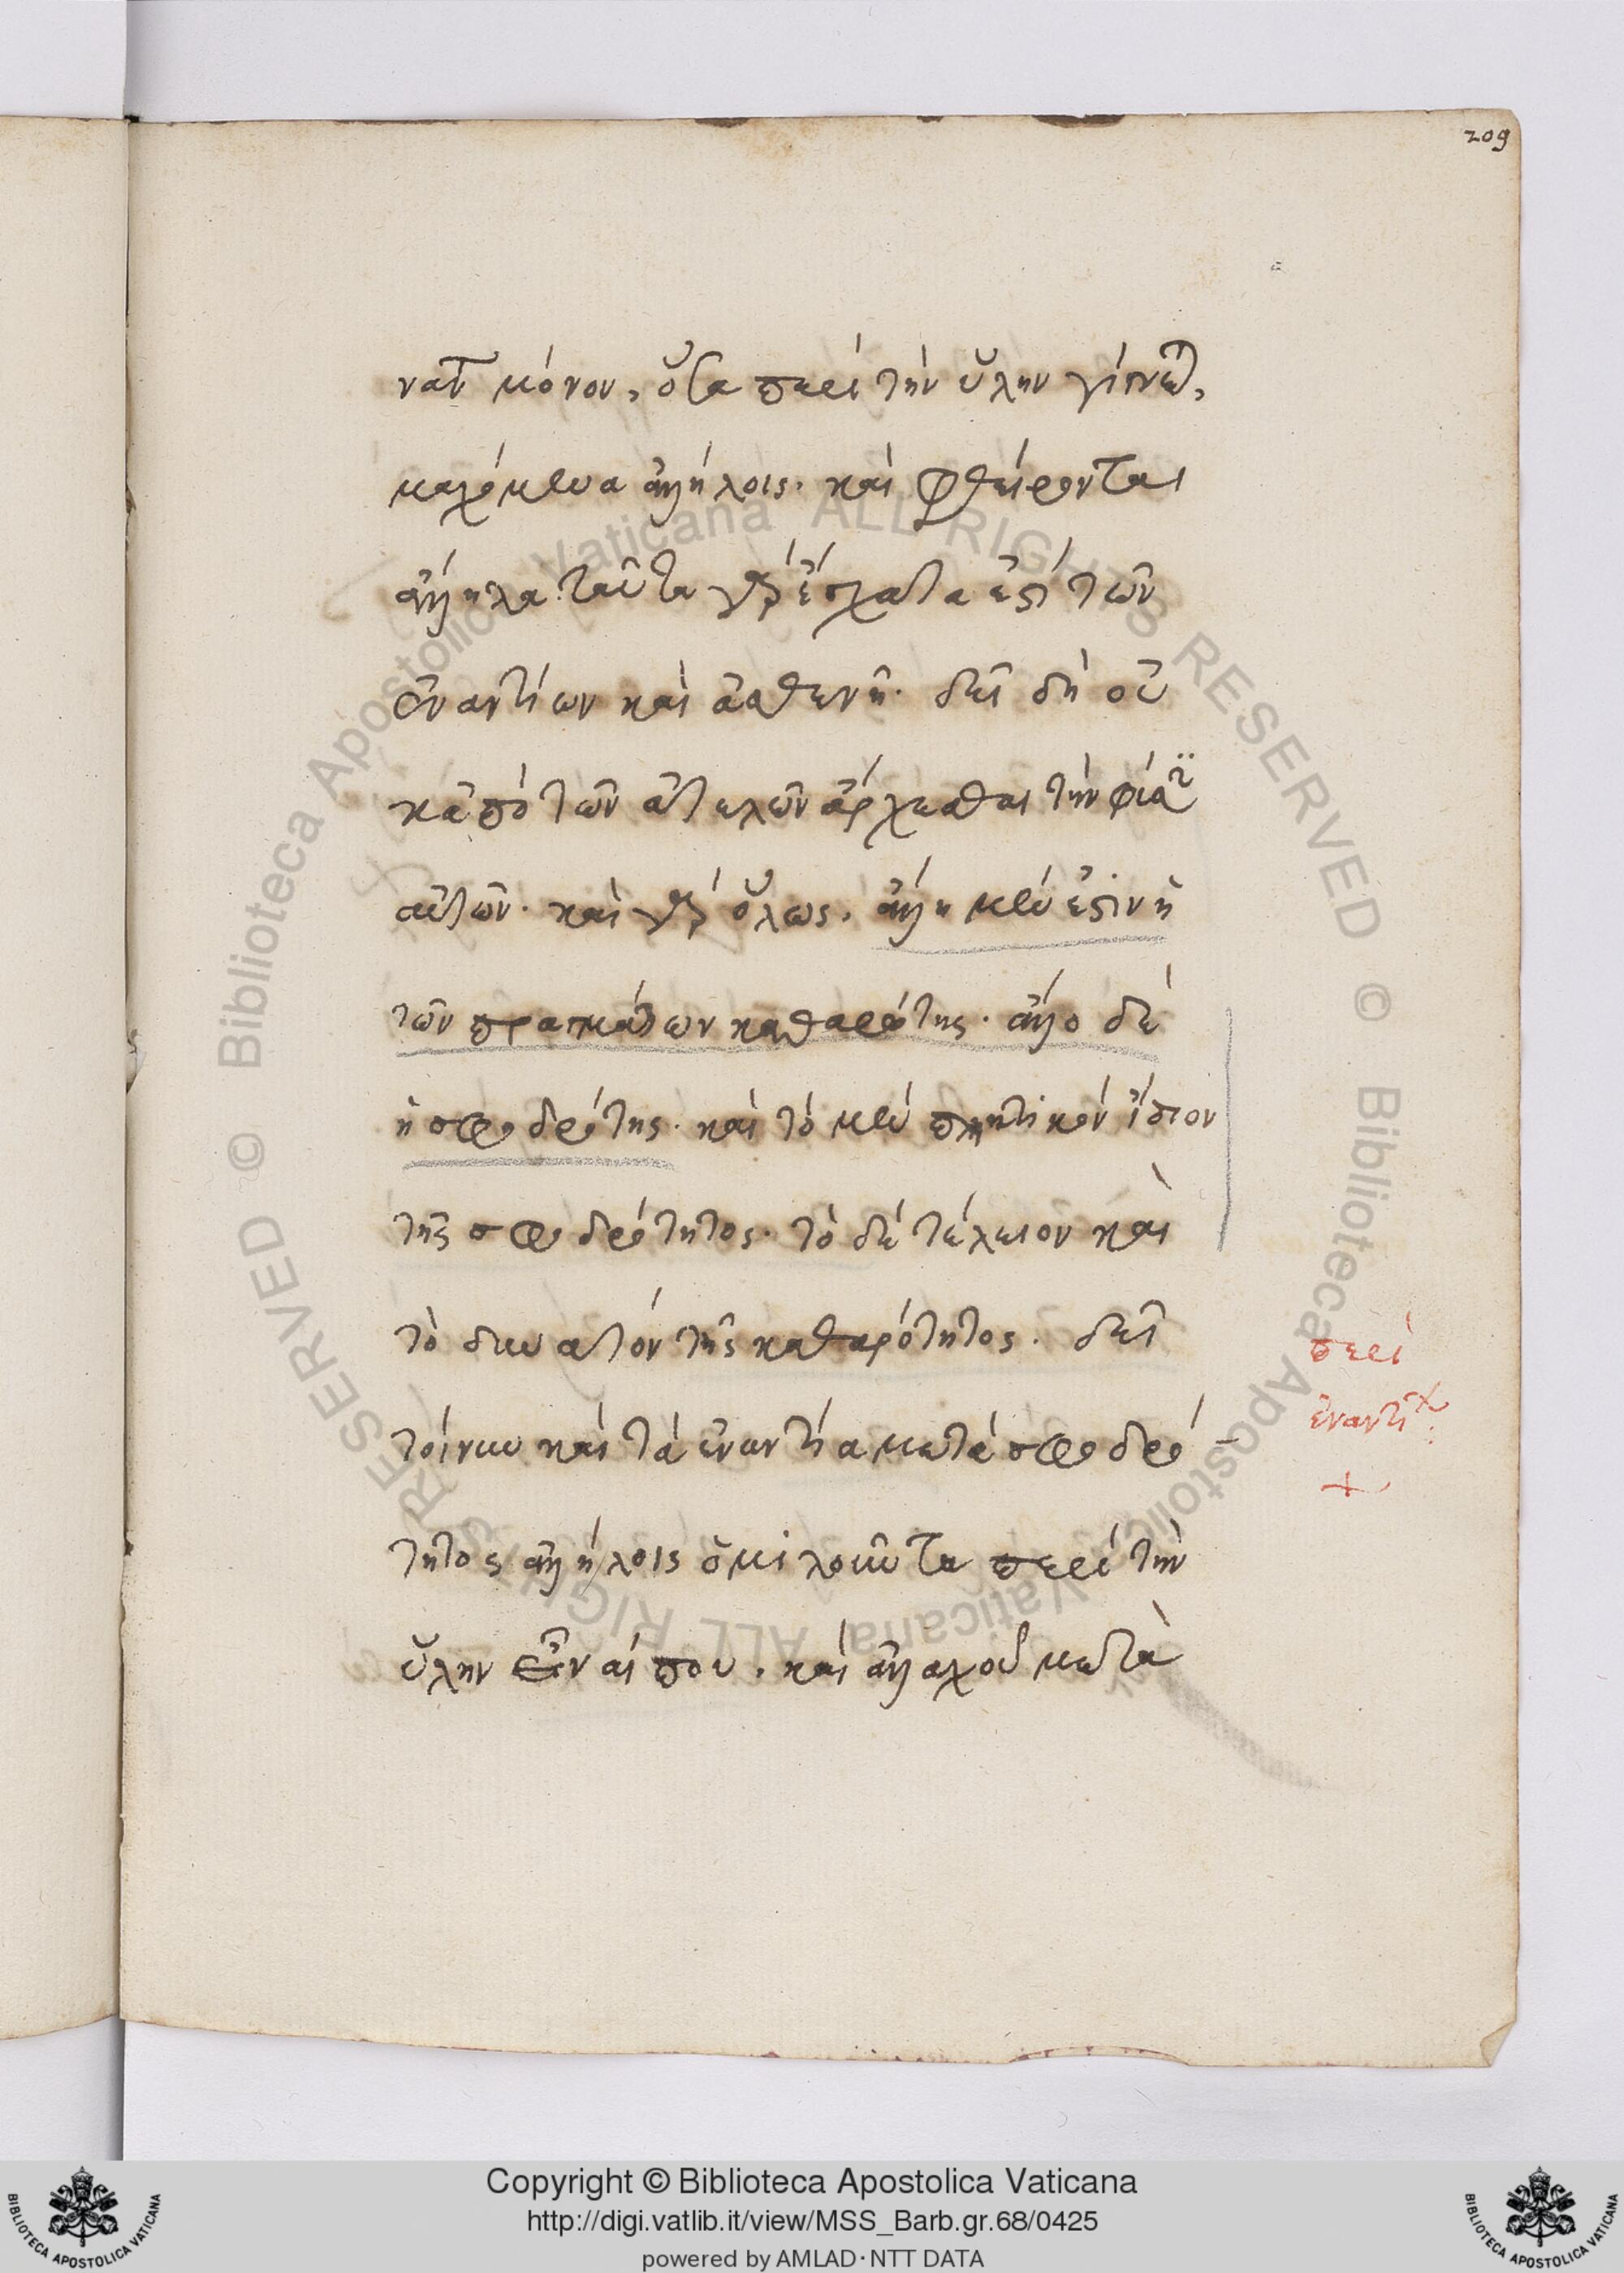 209
ναν μόνον, ὅσα περὶ τὴν ὕλην γίνεται,
μαχόμενα ἀλλήλοις. καὶ φθείρονται
ἄλληλα ταῦτα γὰρ ἔσχατα ἐστὶ τῶν
ἐναντίων καὶ ἀσθενῆ. δεῖ δὴ οὐ
κ ἀπὸ τῶν ἀτελῶν ἄρχεσθαι τὴν
αὐτῶν. καὶ γὰρ ὅλως, ἄλλη μέν ἐστιν ἡ
τῶν πραγμάτων καθαρότης. ἄλλο δὲ
ἡ σφοδρότης. καὶ τὸ μὲν πληκτικὸν ἴδιον
τῆς σφοδρότητος. τὸ δὲ τέλειον καὶ
τὸ δυνατὸν τῆς καθαρότητος. δεῖ
τοίνυν καὶ τὰ ἐναντία μετὰ σφοδρό
τητος ἀλλήλοις ὁμιλοῦντα περὶ τὴν
ὕλην εἶναί που. καὶ ἀλλαχοῦ μετὰ
περὶ
ἐναντί
+
Copyright © Biblioteca Apostolica Vaticana
http://digi.vatlib.it/view/MSS_Barb.gr.68/0425
powered by AMLAD·NTT DATA
BIBLIOTECA APOSTOLICA VATICANA
BIBLIOTECA APOSTOLICA VATICANA
© Biblioteca Apostolica Vaticana ALL RIGHTS RESERVED © Biblioteca Apostolica Vaticana ALL RIGHTS RESERVED